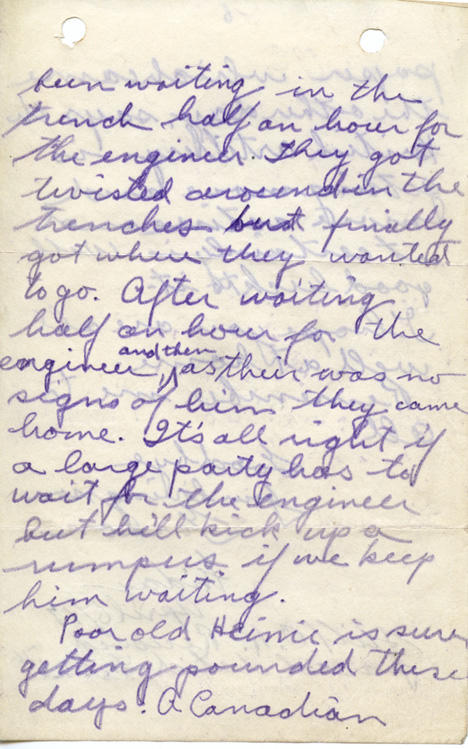 been waiting in the
trench half an hour for
the engineer. They got
twisted around in the
trenches but finally
got where they wanted
to go. After waiting
half an hour for the
engineer and then as their was no
signs of him they came
home. It's all right if
a large party has to
wait for the engineer
but hill kick up a
rumpus if we keep
him waiting.
Poor old Heinie is sure
getting pounded these
days. A Canadian